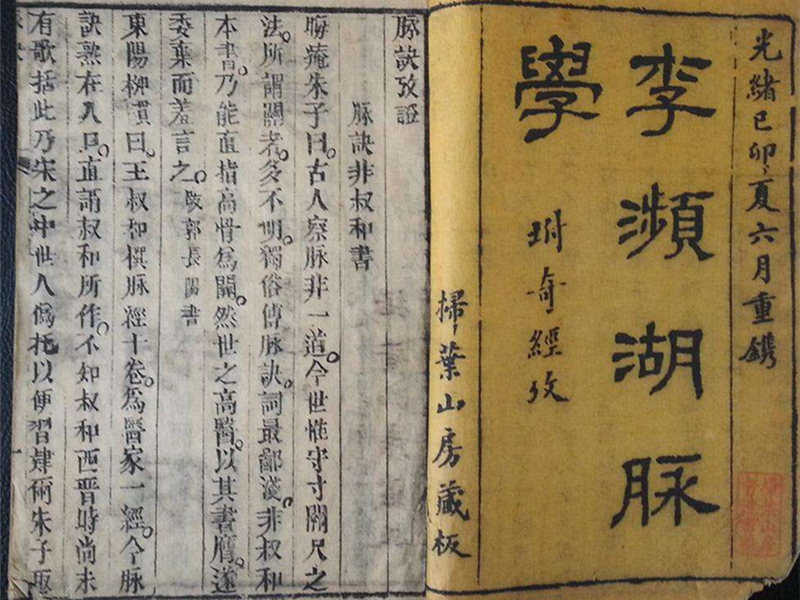 光緒己卯夏六月重鐫
李瀕湖脉
學
坿奇經攷
掃葉山房藏板
脉訣攷證
脉訣非叔和書
晦庵朱子曰古人察脉非一道今世惟守寸關尺之
法所謂關者多不明獨俗傳脉訣詞最鄙淺非叔和
本書乃能直指高骨爲關然世之高醫以其書贋遂
委棄而羞言之跋郭長陽書
東陽柳貫曰王叔和撰脉經十卷爲醫家一經今脉
訣熟在人口直謂叔和所作不知叔和西晉時尚未
有歌括此乃宋之中世人僞托以便習肄術朱子取